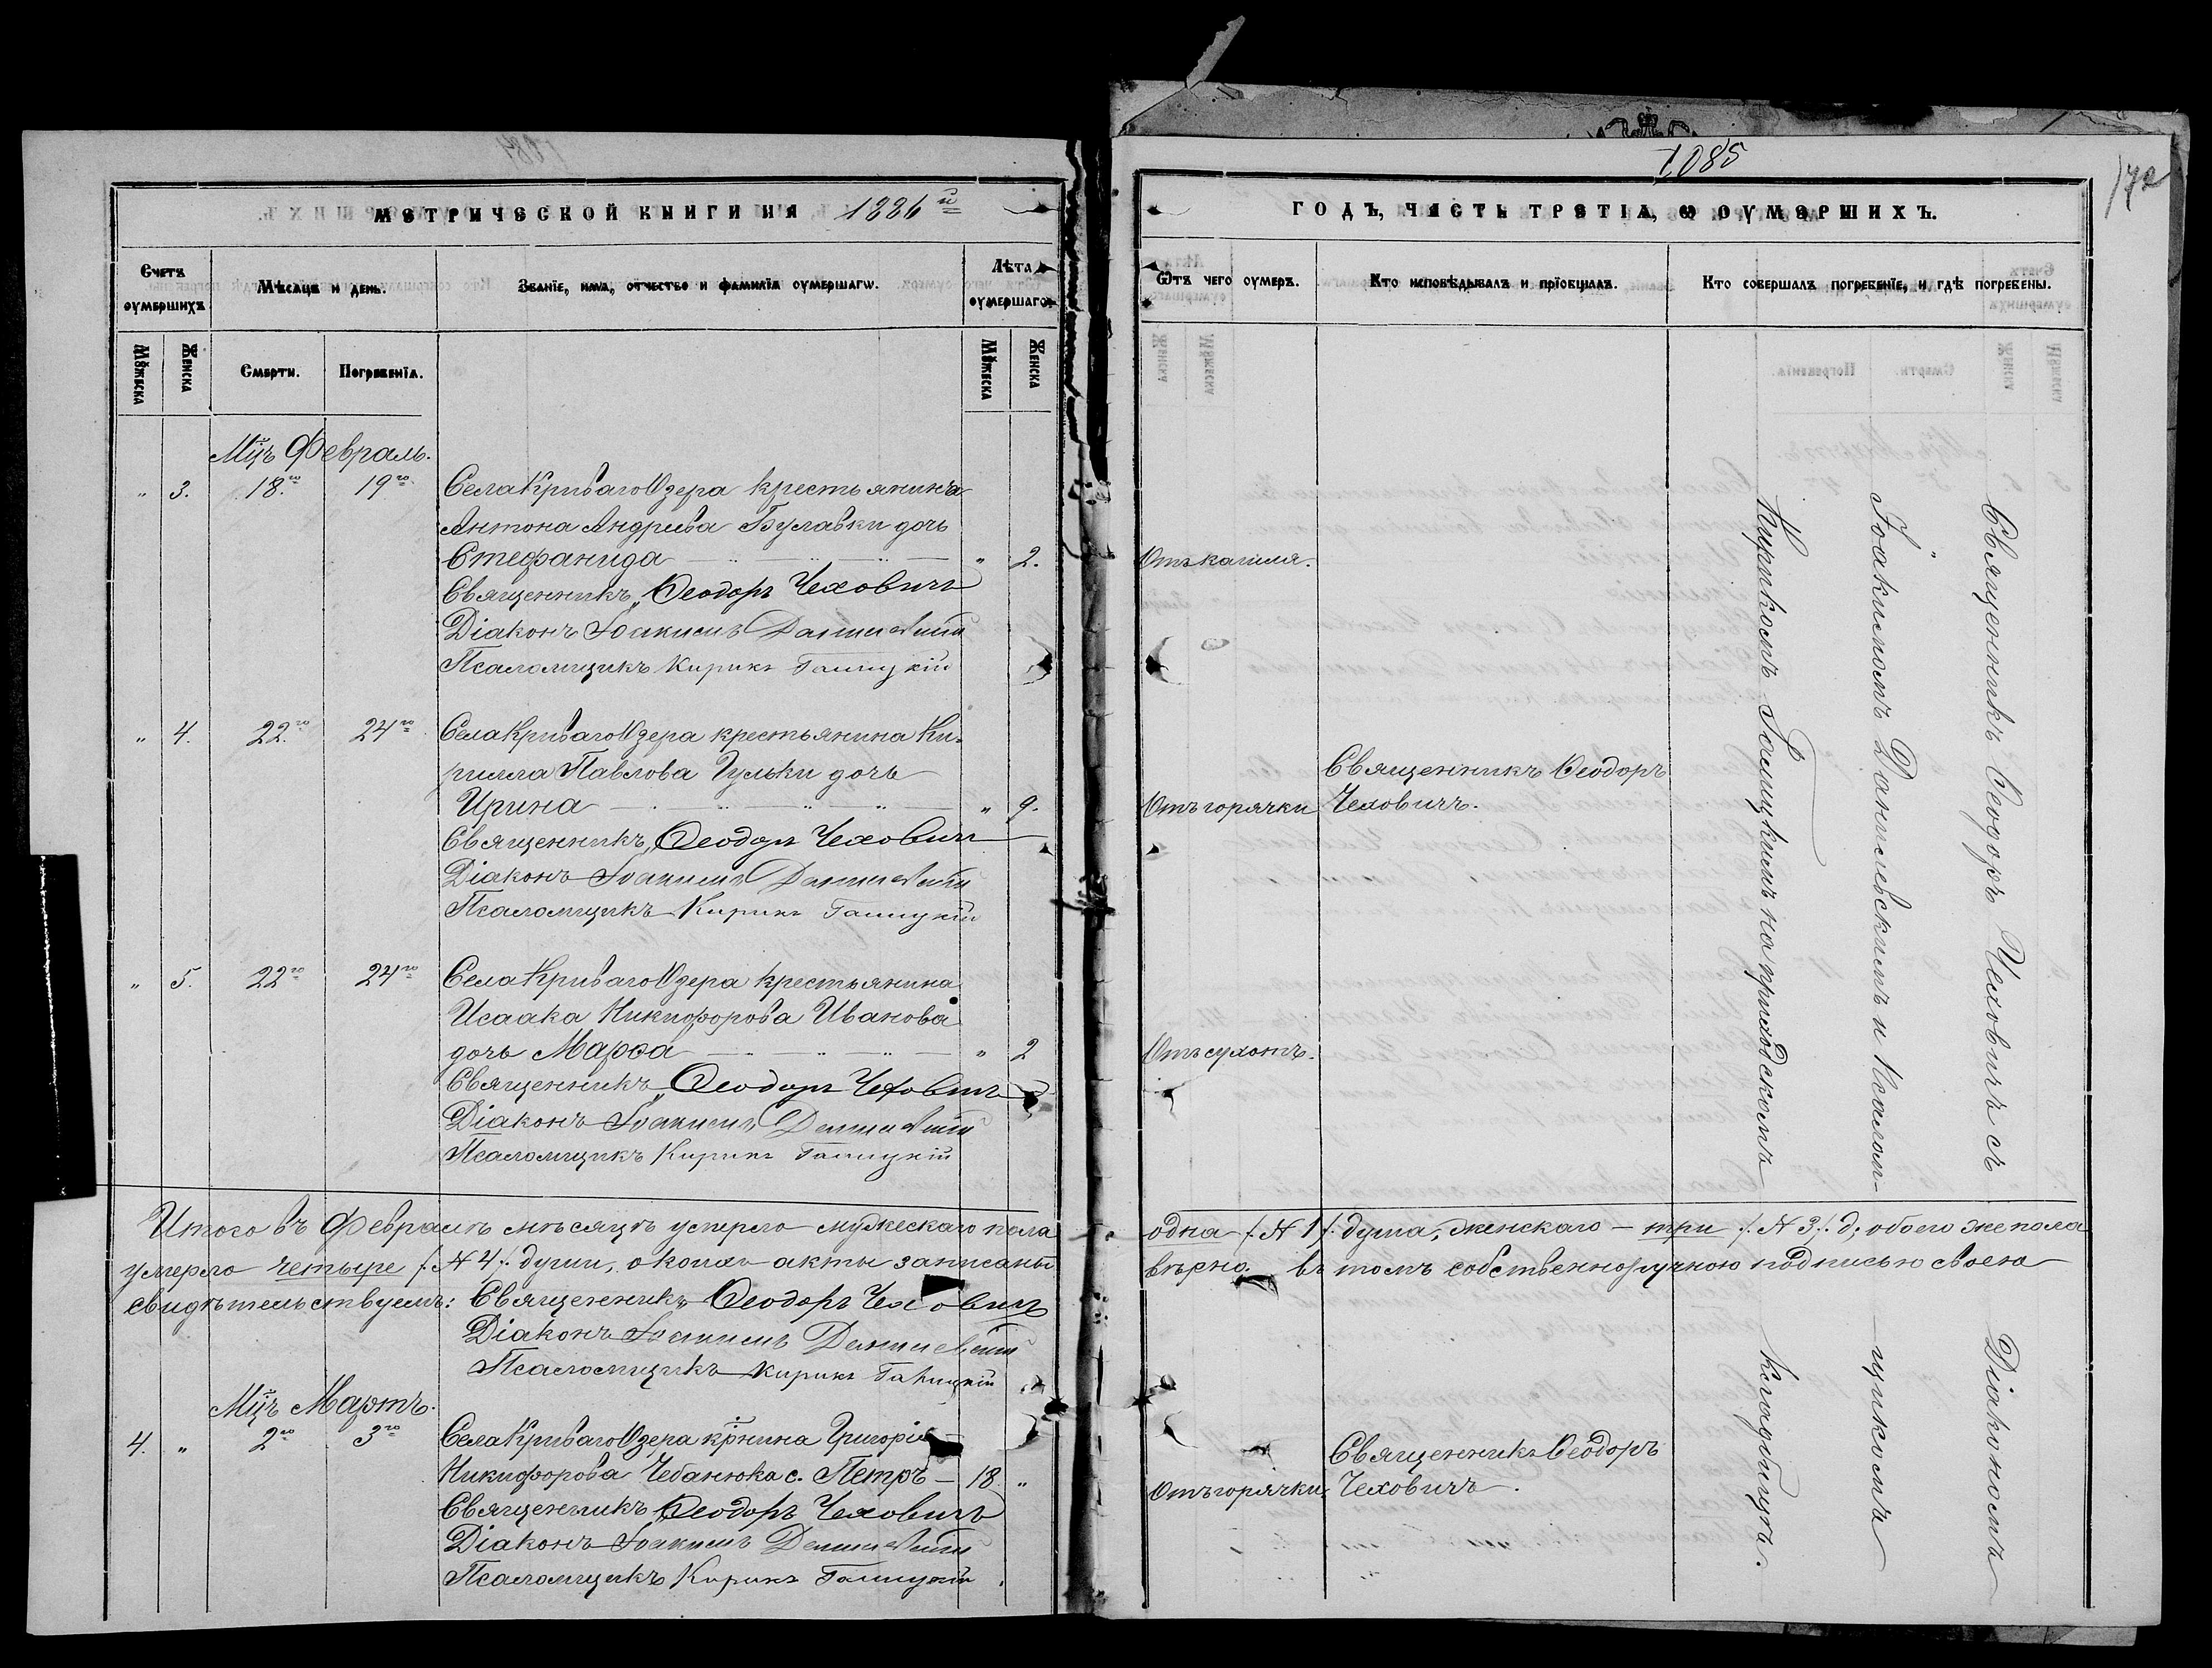 1085
172
МЕТРИЧЕСКОЙ КНИГИ НА 1886й
ГОДЪ, ЧАСТЬ ТРЕТІѦ, Ѡ ОУМЕРШИХЪ.
Счетъ оумершихъ
Мѣсяцъ и день.
Званїе, имѧ, отчество и фамилїѧ оумершагѡ.
Лѣта оумершагѡ
Ѿтъ чего оумеръ.
Кто исповѣдывалъ и прїобщалъ.
Кто совершалъ погребенїе, и гдѣ погребены.
Мꙋжеска
Женска
Смерти.
Погребенїѧ.
Мꙋжеска
Женска
Мцъ Февраль.
" 3. 18.го 19го Села Криваго Озера крестьянина
Антона Андреева Булавки дочь
Стефанида " 2. Отъ кашля.
Священникъ Ѳеодоръ Чеховичъ
Діаконъ Іоакимъ Данилевскій
Псаломщикъ Кирикъ Галицкій
" 4. 22.го 24го Села Криваго Озера крестьянина Ки-
рилла Павлова Гульки дочь
Ирина " 9. Отъ горячки
Священникъ Ѳеодоръ
Чеховичъ.
Священникъ Ѳеодоръ Чеховичъ
Діаконъ Іоакимъ Данилевскій
Псаломщикъ Кирикъ Галицкій
" 5. 22го 24го Села Криваго Озера крестьянина
Исаака Никифорова Иванова
дочь Марѳа " 2 Отъ сухотъ.
Священникъ Ѳеодоръ Чеховичъ
Діаконъ Іоакимъ Данилевскій
Псаломщикъ Кирикъ Галицкій
Священникъ Ѳеодоръ Чеховичъ съ Діакономъ
Іоакимомъ Данилевскимъ и Псалом-щикомъ
Кирикомъ Галицкимъ на приходскомъ кладбищѣ.
Итого въ Февралѣ мѣсяцѣ умерло мужескаго пола одна /№ 1/. душа, женскаго – три /.№ 3/. д; обоего же пола
умерло четыре /.№ 4/. души, о коихъ акты записаны вѣрно. въ томъ собственноручною подписью своею
свидѣтельствуемъ: Священникъ Ѳеодоръ Чеховичъ
Діаконъ Іоакимъ Данилевскій
Псаломщикъ Кирикъ Галицкій
Мцъ Мартъ.
4. " 2го 3го Села Криваго Озера крянина Григорія
Никифорова Чебанюка с. Петръ – 18 " Отъ горячки.
Священникъ Ѳеодоръ
Чеховичъ.
Священникъ Ѳеодоръ Чеховичъ
Діаконъ Іоакимъ Данилевскій
Псаломщикъ Кирикъ Галицкій